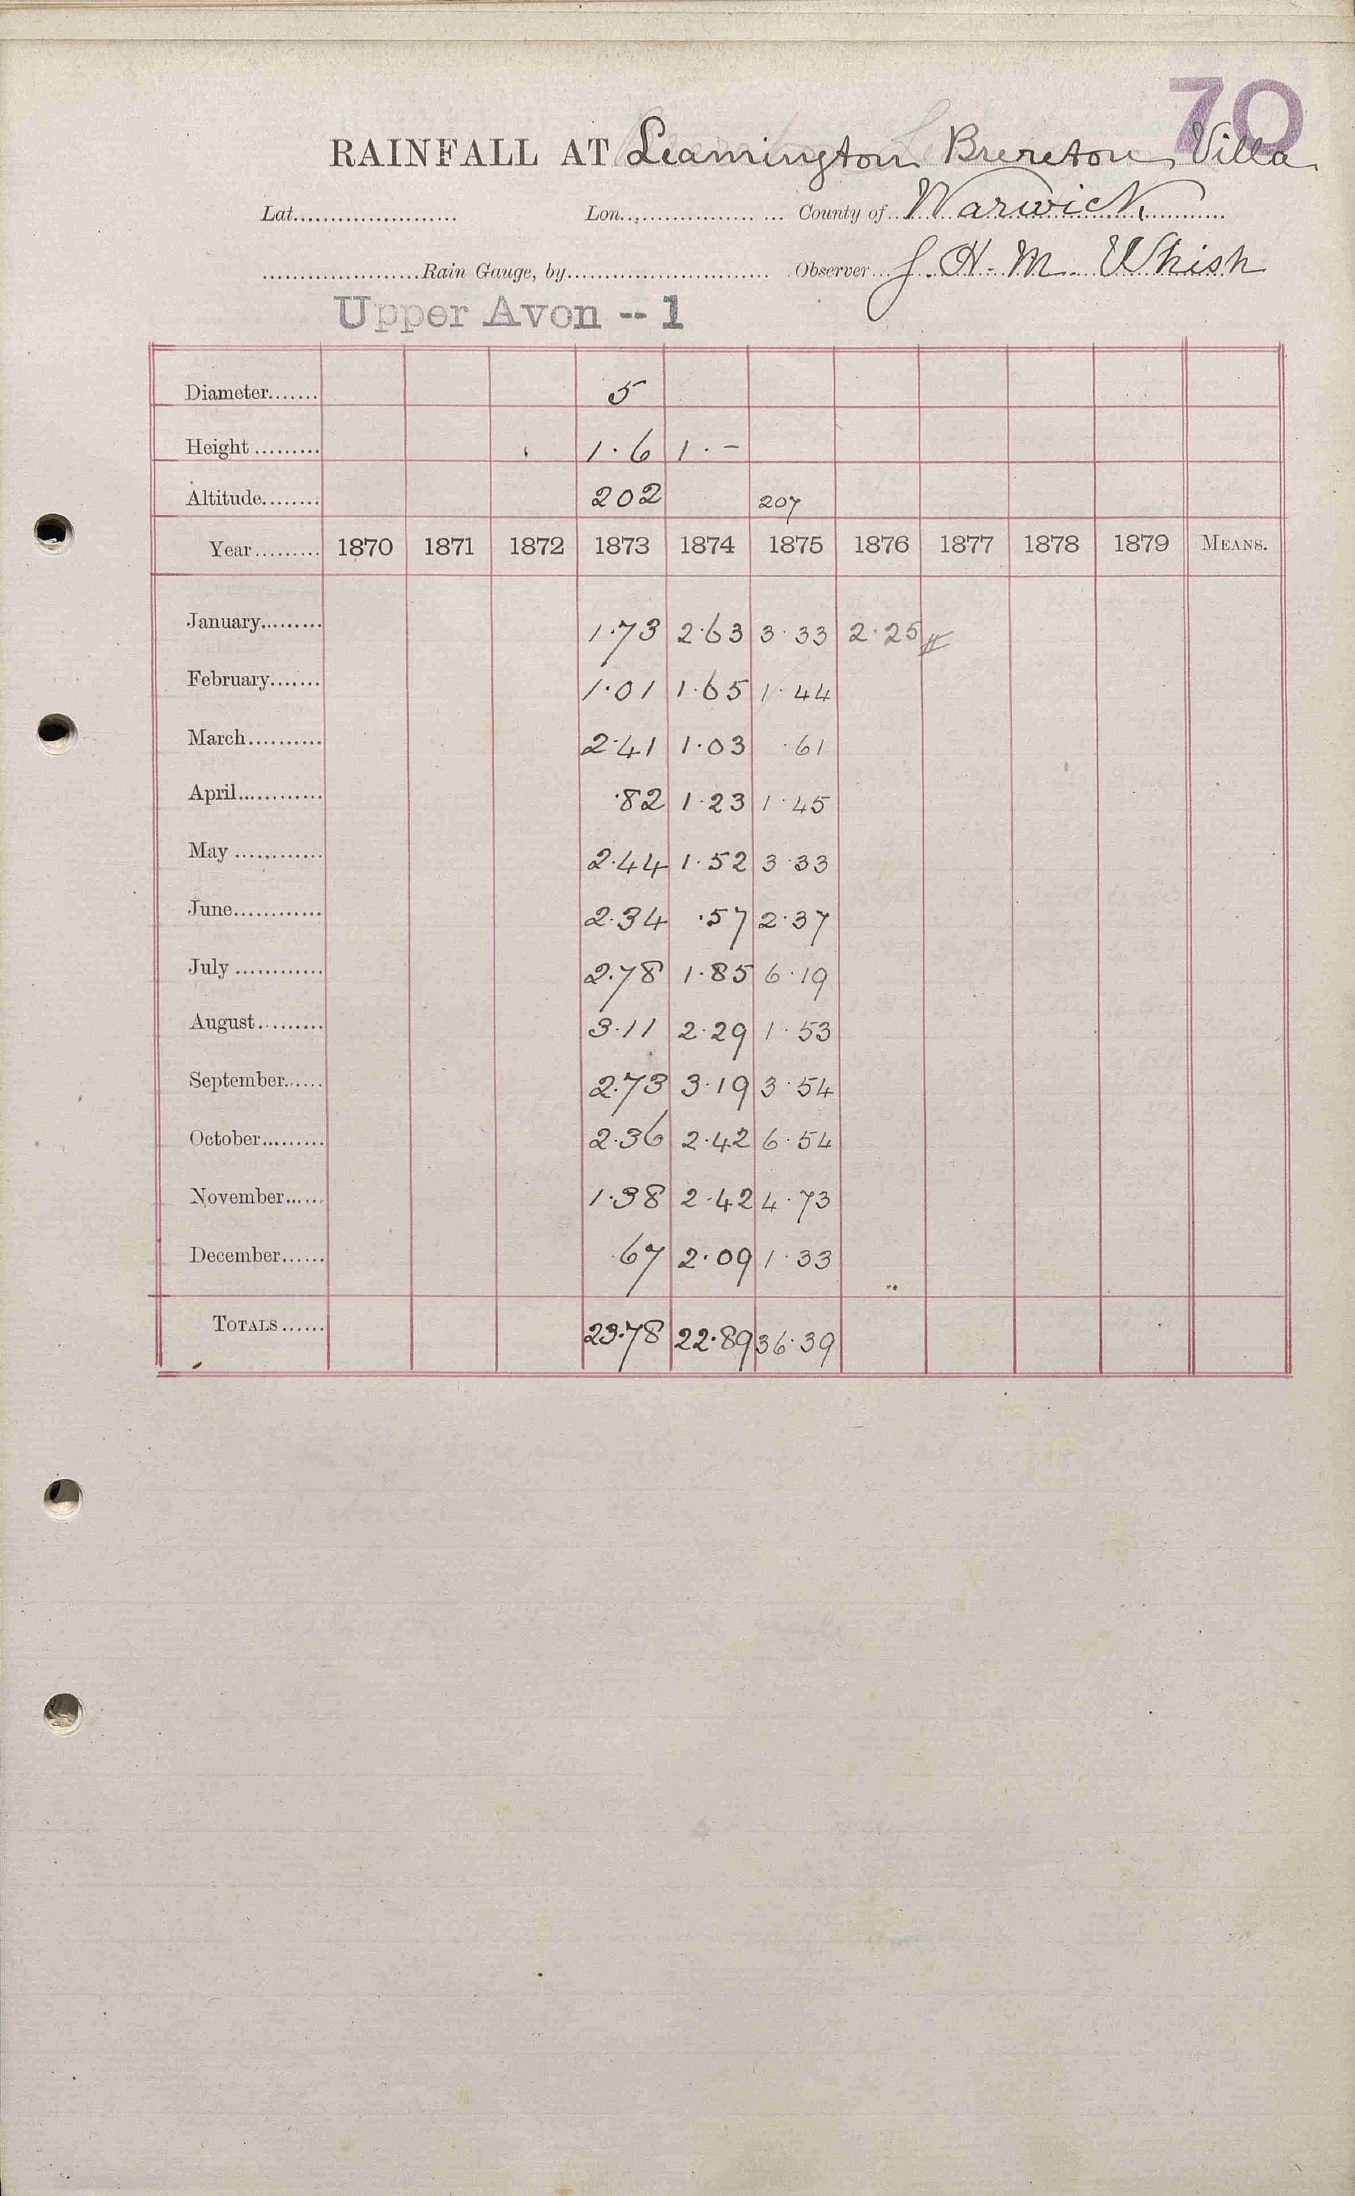 70
RAINFALL AT Leamington Brereton Villa
Lat...................... Lon..................... County of Warwick
......................Rain Gauge, by........................... Observer J. H. M. Whish
Upper Avon -- 1
Diameter....... 5
Height ......... 1·6 1·–
Altitude........ 202 207
Year......... 1870 1871 1872 1873 1874 1875 1876 1877 1878 1879 MEANS.
January......... 1·73 2·63 3·33 2·25
February....... 1·01 1·65 1·44
March.......... 2·41 1·03 ·61
April............ ·82 1·23 1·45
May ............ 2·44 1·52 3·33
June............ 2·34 ·57 2·37
July ............ 2·78 1·85 6·19
August......... 3·11 2·29 1·53
September...... 2·73 3·19 3·54
October......... 2·36 2·42 6·54
November...... 1·38 2·42 4·73
December...... ·67 2·09 1·33
TOTALS...... 23·78 22·89 36·39